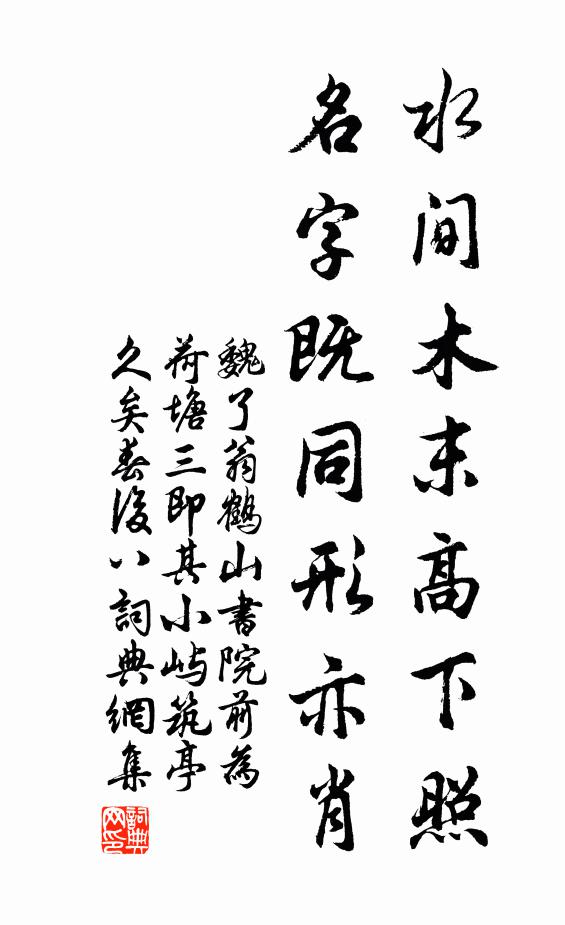 水间木末高下照
名字既同形亦肖
魏了翁鹤山書院前為
荷塘三即其小屿筑亭
久矣春後八詞典網集
詞典网印